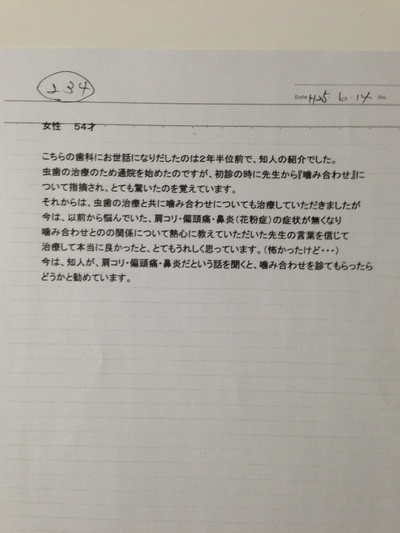 234
Date H25 6.14 No
女性　54才
こちらの歯科にお世話になりだしたのは2年半位前で、知人の紹介でした。
虫歯の治療のため通院を始めたのですが、初診の時に先生から『噛み合わせ』に
ついて指摘され、とても驚いたのを覚えています。
それからは、虫歯の治療と共に噛み合わせについても治療していただきましたが
今は、以前から悩んでいた、肩コリ・偏頭痛・鼻炎(花粉症)の症状が無くなり
噛み合わせとのの関係について熱心に教えていただいた先生の言葉を信じて
治療して本当に良かったと、とてもうれしく思っています。(怖かったけど・・・)
今は、知人が、肩コリ・偏頭痛・鼻炎だという話を聞くと、噛み合わせを診てもらったら
どうかと勧めています。